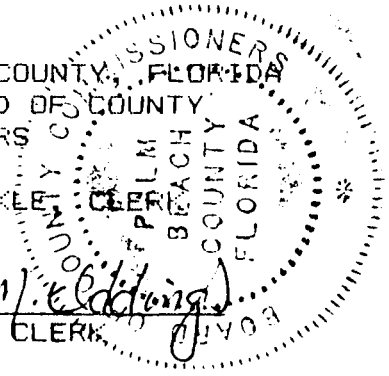 COUNTY, FLORIDA
D OF COUNTY
RS
KLE, CLERK
CLERK
COUNTY COMMISSIONERS
BOARD O
PALM
BEACH
COUNTY
FLORIDA